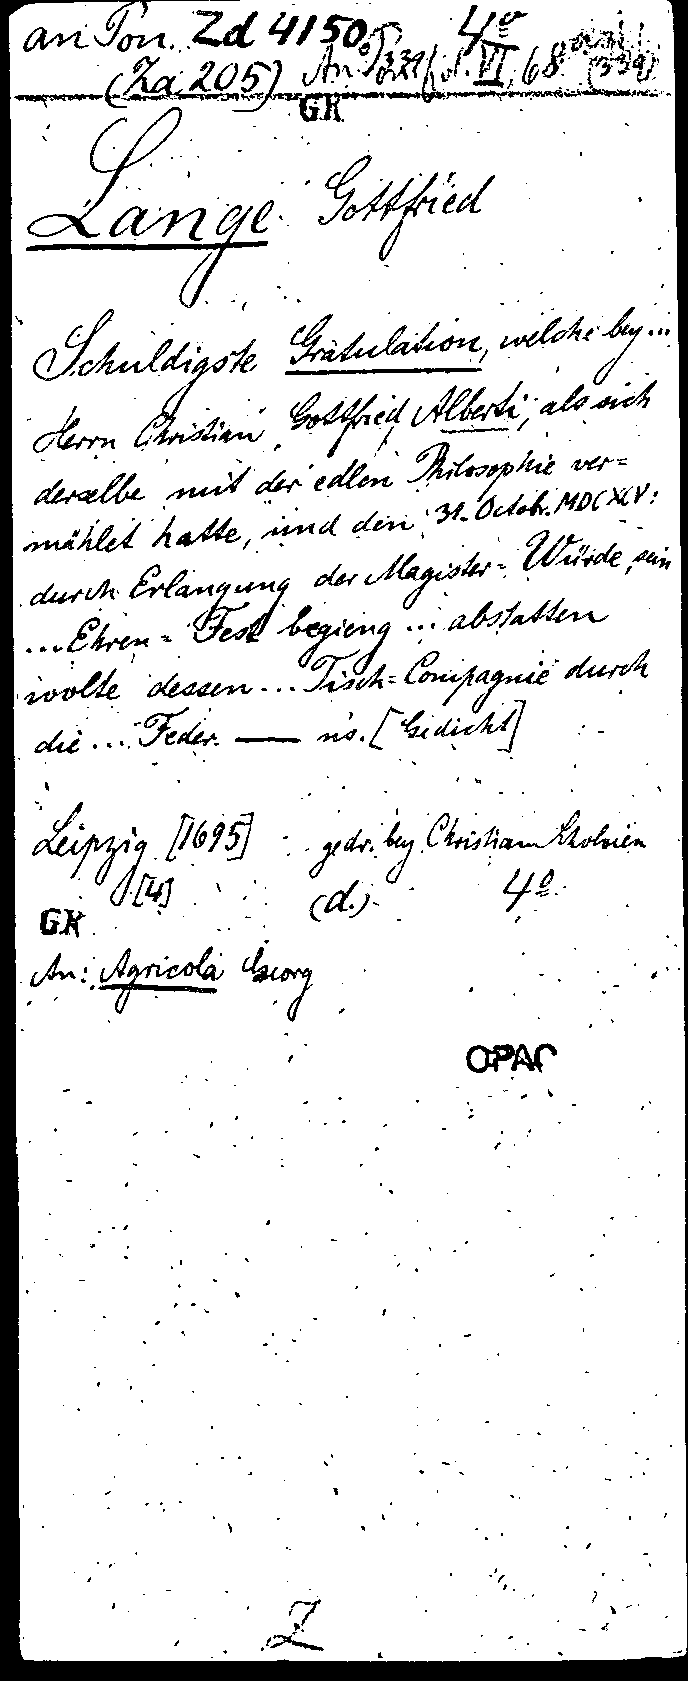 an Pon. Zd 4150, 4º
(Za 205) An Pol. VI, 68
GK
Lange Gottfried
Schuldigste Gratulation, welche bey ...
Herrn Christian Gottfried Alberti, als sich
derselbe mit der edlen Philosophie ver=
mählet hatte, und den 31. Octobr. MDCXCV.
durch Erlangung der Magister=Würde sein
... Ehren=Fest begieng ... abstatten
wolte dessen ... Tisch=Compagnie durch
die ... Feder — ns. [Gedicht]
Leipzig [1695] gedr. bey Christian
[4] (d.) 4º
GK
An: Agricola Georg
OPAC
Z